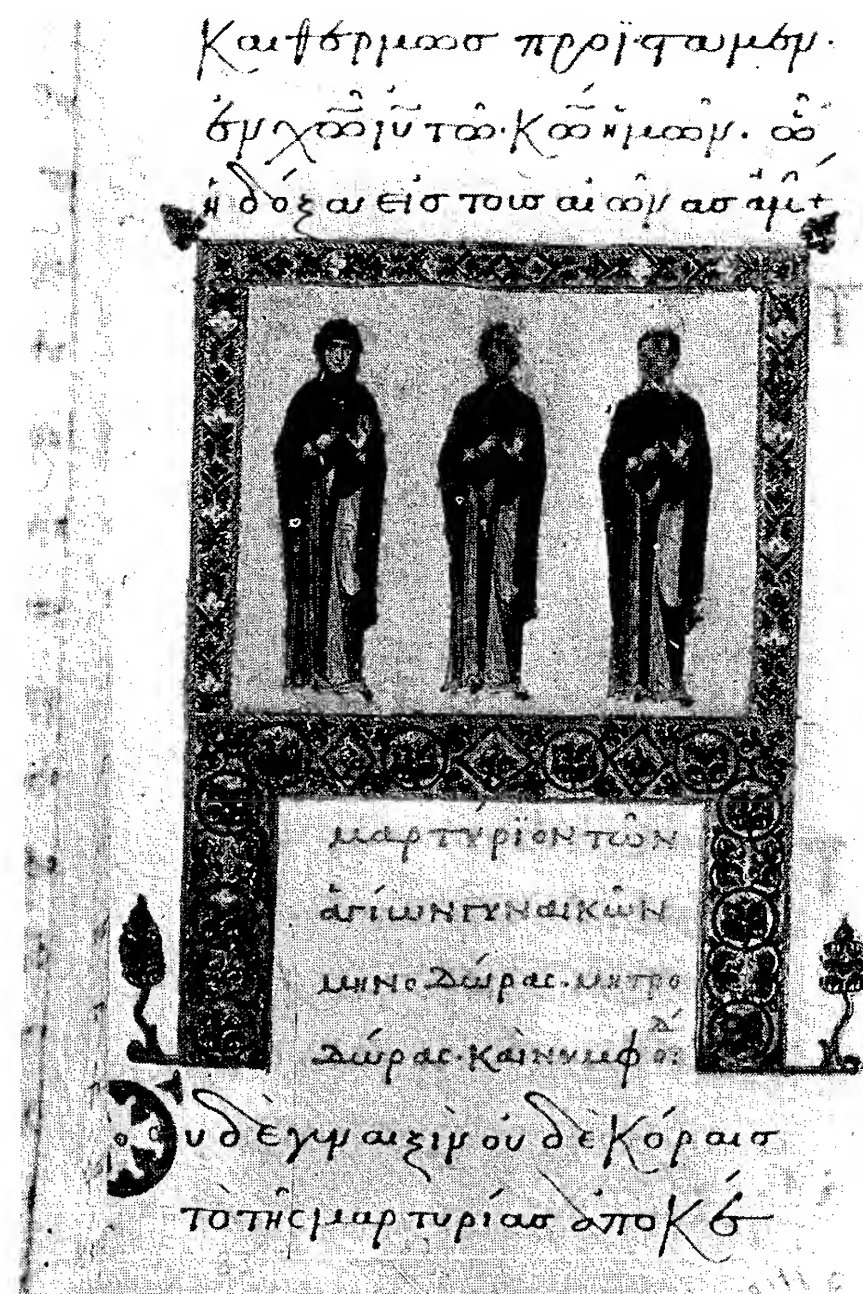 Και θερμῶσ προϊσταμέν·
ἐν χῶ ιυ τῶ· Κῶ ἡμῶν. ὧ
ἡ δόξα εἰσ τουσ αἰῶνασ ἀμ+
μαρτύριον τῶν
ἁγίων γυναικῶν
μηνοδώρας· μητρο
δώρας· καὶ νυμφοδ́:
Ουδὲ γυναιξὶν οὐδὲ Κόραισ
τὸ τῆς μαρτυρίασ ἀποΚέ